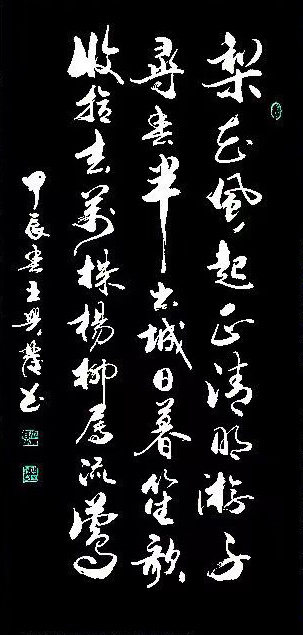 梨花風起正清明游子
尋春半出城日暮笙歌
收拾去萬株楊柳属流鶯
甲辰春王興书